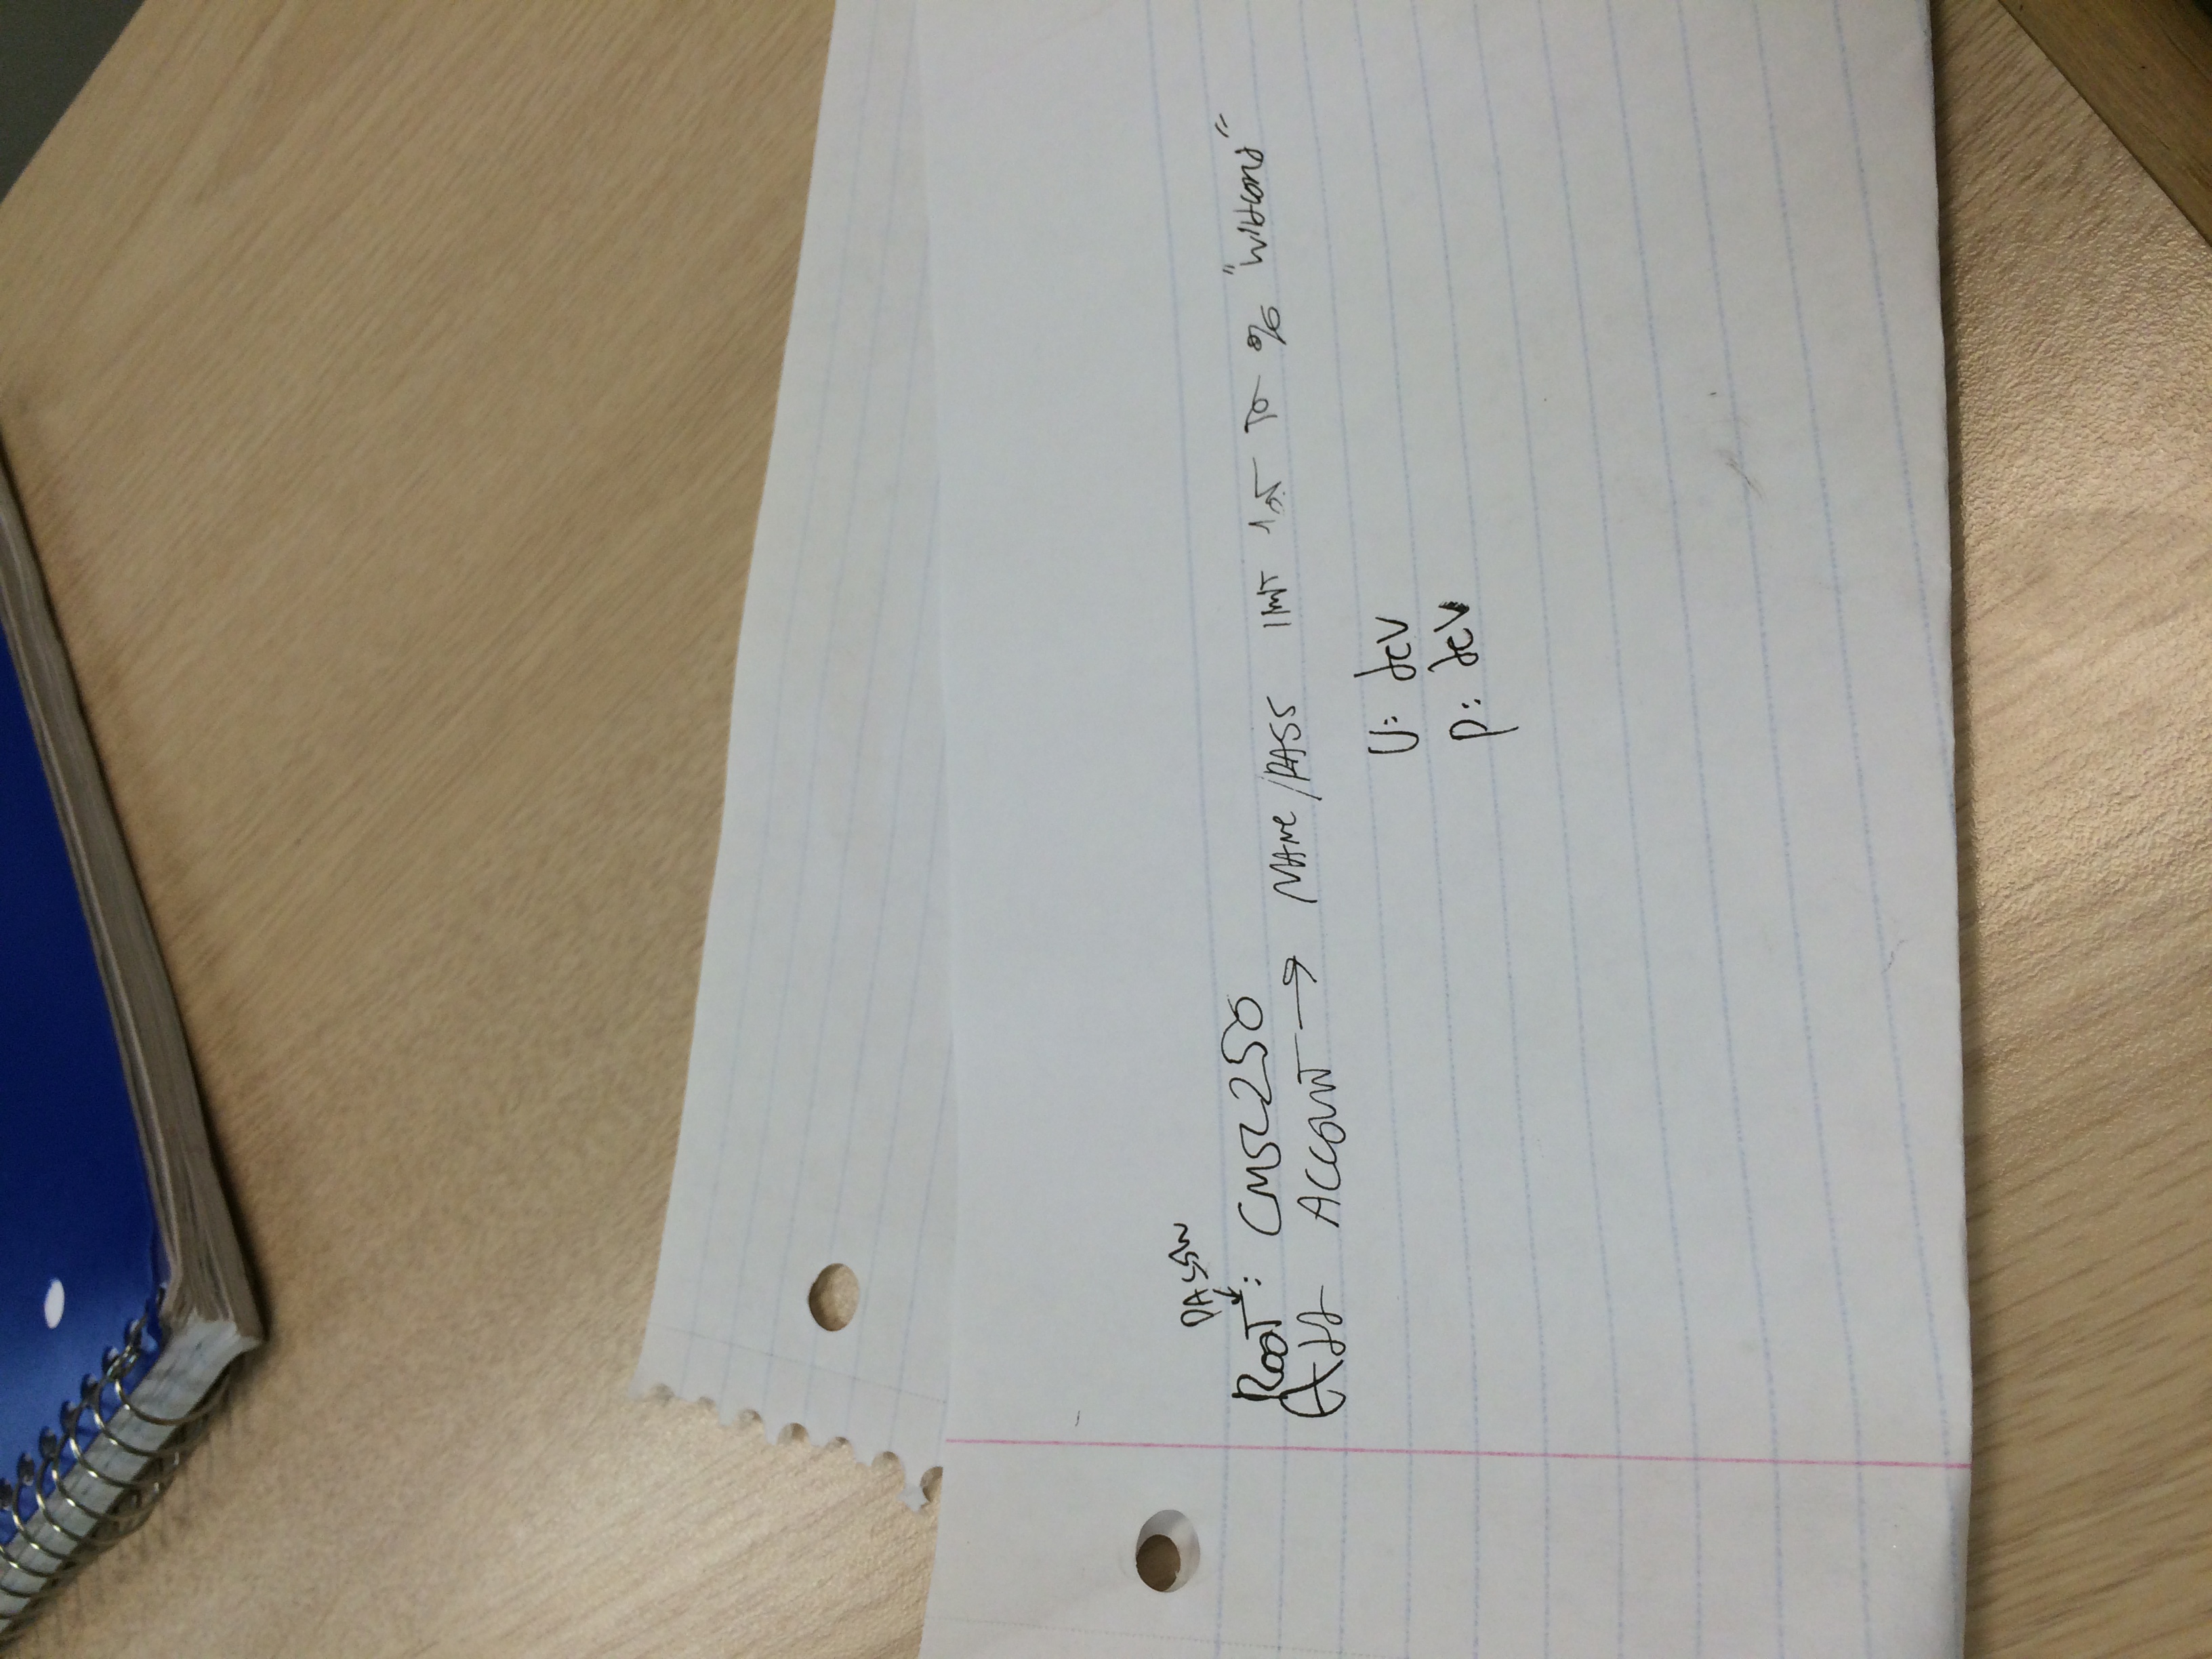 PASSW
ROOT: CMSC250
Add ACCOUNT → NAME/PASS limit to % "wildcard"
U: dev
P: dev